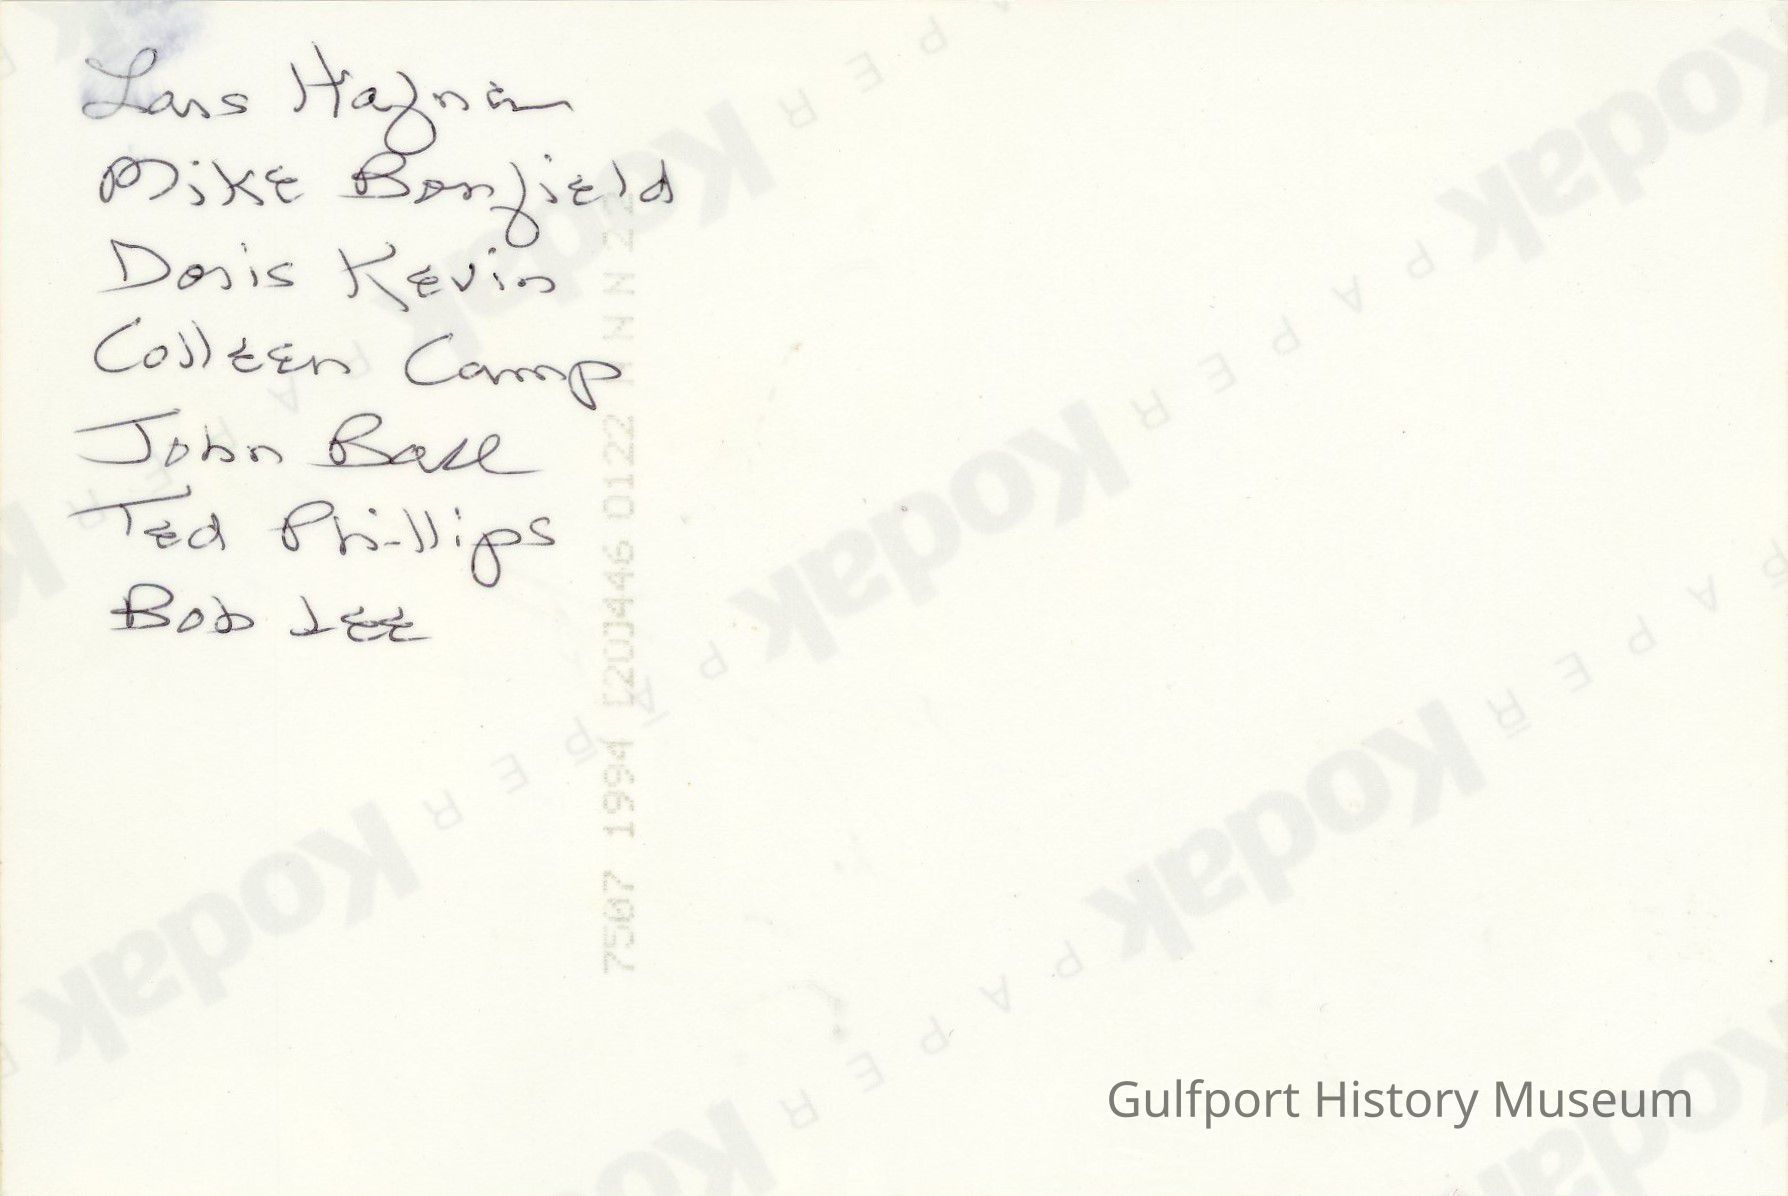 Lars Hafner
Mike Bonfield
Doris Kevin
Colleen Camp
John Ball
Ted Phillips
Bob Lee
7507 1994 0122 N N 22
Kodak
PAPER
Kodak
PAPER
Kodak
PAPER
Kodak
PAPER
Kodak
PAPER
Kodak
Gulfport History Museum